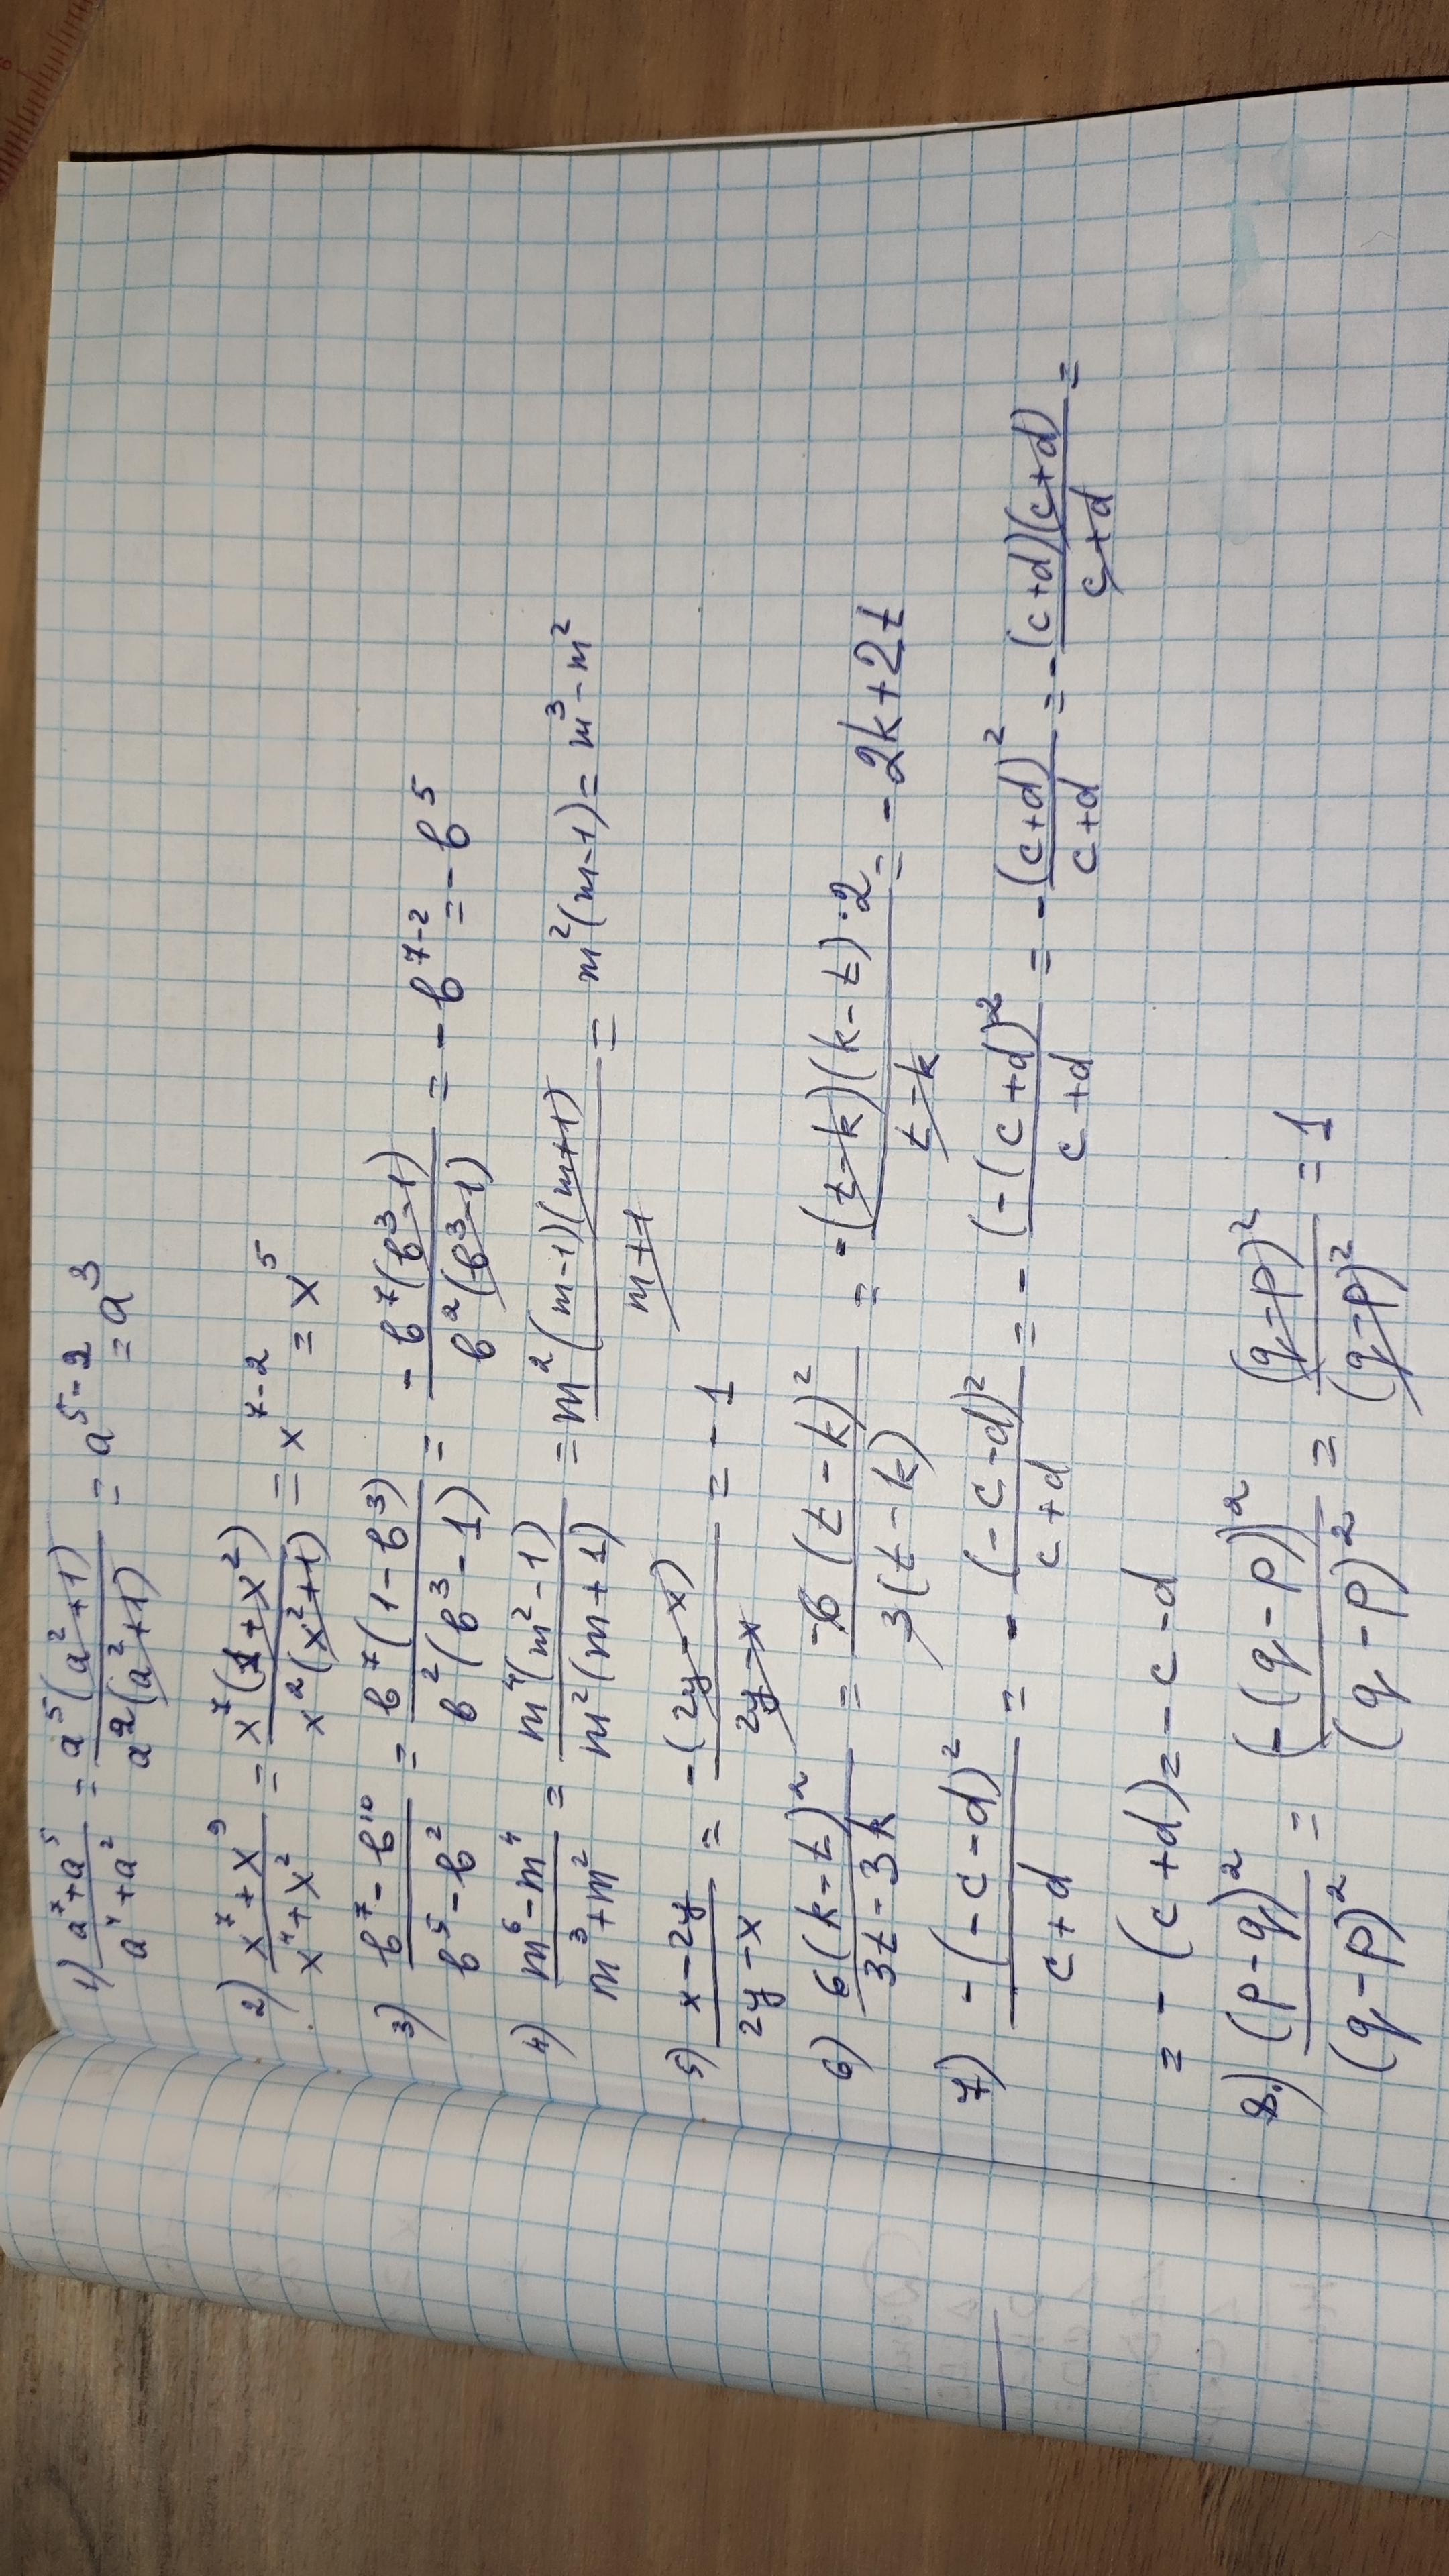 1) (a⁷+a⁵)/(a⁴+a²) = a⁵(a²+1)/a²(a²+1) = a⁵⁻² = a³
2) (x⁷+x⁹)/(x⁴+x²) = x⁷(1+x²)/x²(x²+1) = x⁷⁻² = x⁵
3) (b⁷-b¹⁰)/(b⁵-b²) = b⁷(1-b³)/b²(b³-1) = -b⁷(b³-1)/b²(b³-1) = -b⁷⁻² = -b⁵
4) (m⁶-m⁴)/(m³+m²) = m⁴(m²-1)/m²(m+1) = m²(m-1)(m+1)/(m+1) = m²(m-1) = m³-m²
5) (x-2y)/(2y-x) = -(2y-x)/(2y-x) = -1
6) 6(k-t)²/(3t-3k) = -6(t-k)²/3(t-k) = -(t-k)(k-t)·2/(t-k) = -2k+2t
7) -(-c-d)²/(c+d) = -(-c-d)²/(c+d) = -(-(c+d)²/(c+d) = -(c+d)²/(c+d) = -(c+d)(c+d)/(c+d) =
= -(c+d) = -c-d
8.) (p-q)²/(q-p)² = (-(q-p))²/(q-p)² = (q-p)²/(q-p)² = 1